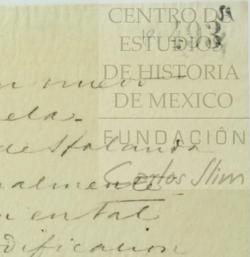 CENTRO DE
ESTUDIOS
DE HISTORIA
DE MEXICO
FUNDACIÓN
Carlos Slim
493
ela.
de Holanda
almente
en tal
odificacion